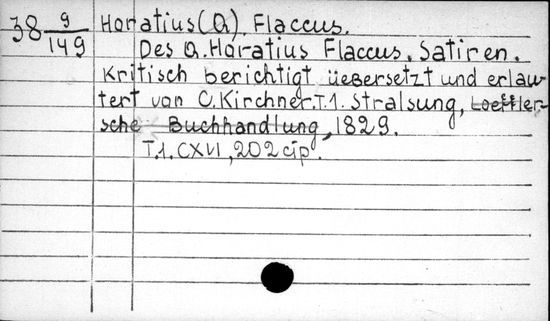 38 9/149 Horatius (Q). Flaccus.
Des Q. Horatius Flaccus. Satiren.
Kritisch berichtigt üebersetzt und erlau-
tert von C. Kirchner. T. 1. Stralsung, Loeffler-
sche Buchhandlung, 1829.
T. 1. CXVI, 202 cip.